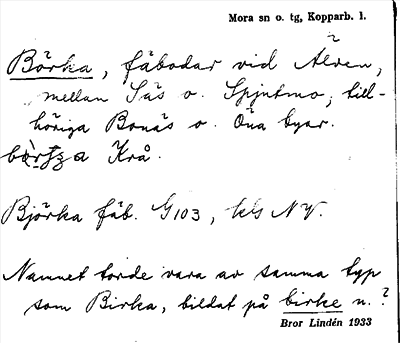 Mora sn o. tg, Kopparb. l.
Börka, fäbodar vid Älven,
mellan Säs o. Spjutmo; till-
höriga Bonäs o. Öna byar.
Krå.
Björka fäb. G103, kls NV.
Namnet torde vara av samma typ
som Birka, bildat på birke n.?
Bror Lindén 1933